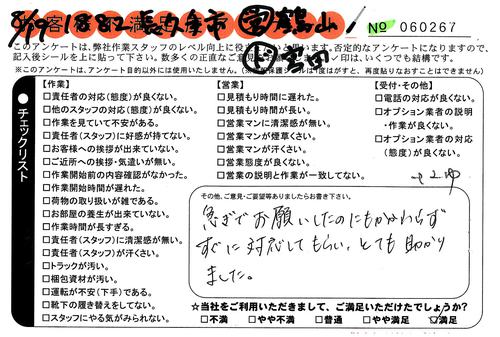 8/19 1882 長久手市 鶴山
No 060267
富田
このアンケートは、弊社作業スタッフのレベル向上に役
否定的なアンケートになりますので、
記入後シールを上に貼って下さい。数多くの正直なご意見
印は、いくつでも結構です。
※このアンケートは、アンケート目的以外には使用いたしません。
保護シールは1度はがすと、再度貼りなおすことはできません)
チェックリスト
【作業】
□責任者の対応(態度)が良くない。
□他のスタッフの対応(態度)が良くない。
□作業を見ていて不安がある。
□責任者(スタッフ)に好感が持てない。
□お客様への挨拶が出来ていない。
□ご近所への挨拶・気遣いが無い。
□作業開始前の内容確認がなかった。
□作業開始時間が遅れた。
□荷物の取り扱いが雑である。
□お部屋の養生が出来ていない。
□作業時間が長すぎる。
□責任者(スタッフ)に清潔感が無い。
□責任者(スタッフ)が汗くさい。
□トラックが汚い。
□梱包資材が汚い。
□運転が不安(下手)である。
□靴下の履き替えをしてない。
□スタッフにやる気がみられない。
【営業】
□見積もり時間に遅れた。
□見積もり時間が長い。
□営業マンに清潔感が無い。
□営業マンが煙草くさい。
□営業マンが汗くさい。
□営業態度が良くない。
□営業の説明と作業が一致してない。
【受付・その他】
□電話の対応が良くない。
□オプション業者の説明
・作業が良くない。
□オプション業者の対応
(態度)が良くない。
その他、ご意見・ご要望等ありましたらお書き下さい。
急ぎでお願いしたのにもかかわらず
すぐに対応してもらい、とても助かり
ました。
☆当社をご利用いただきまして、ご満足いただけたでしょうか?
□不満 □やや不満 □普通 □やや満足 □満足